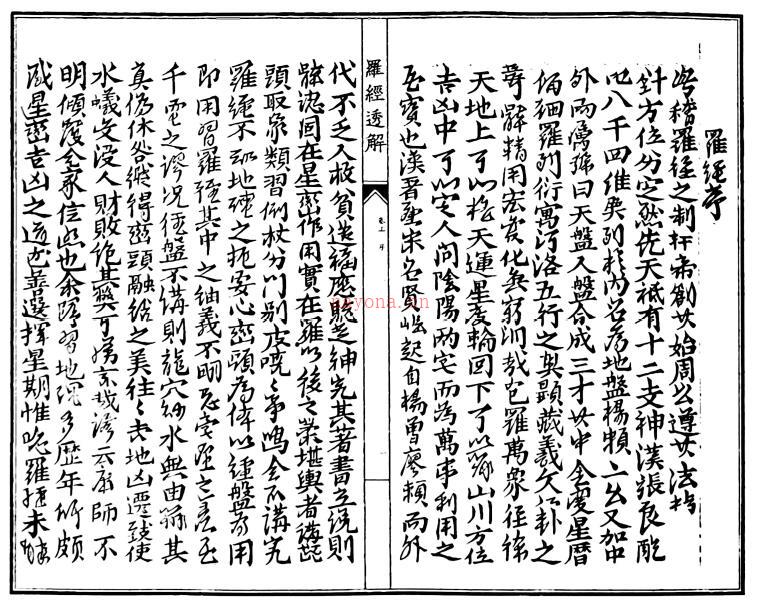 羅經序
嘗稽羅經之制軒帝創其始周公遵其法指
針方位分定然先天祗有十二支神漢張良配
至八千四維奧列於內名為地盤楊賴二公又加中
外兩層號曰天盤人盤合成三才其中金度星曆
俱細羅列衍寓河洛五行之奧顯藏羲文八卦之
蘊辭精用宏變化無窮洞哉包羅萬象經緯
天地上可以推天運星度輪回下可以察山川方位
吉凶中可以定人間陰陽兩宅而為萬事利用之
至寶也漢晉唐宋名賢崛起自楊曾廖賴而外
羅經透解
卷上 序
代不乏人救貧造福應驗是神究其著書立說則
體認固在星巒作用實在羅以後之業堪輿者講
頭取象類習倒杖分門別皮嘵嘵爭鳴全不講究
羅經不知地理之振要必巒頭為體以經盤為用
即用習羅經其中之細義不明至定理之差至
千里之謬況經盤不講則龍穴砂水無由辨其
真偽休咎縱得巒頭融結之美往往吉地凶遷致使
水蟻交沒人財敗絕其奧可勝言哉諺云庸師不
明傾覆全家信然也余歷習地理多歷年所頗
識星巒吉凶之道並選擇星期惟嘆羅經未